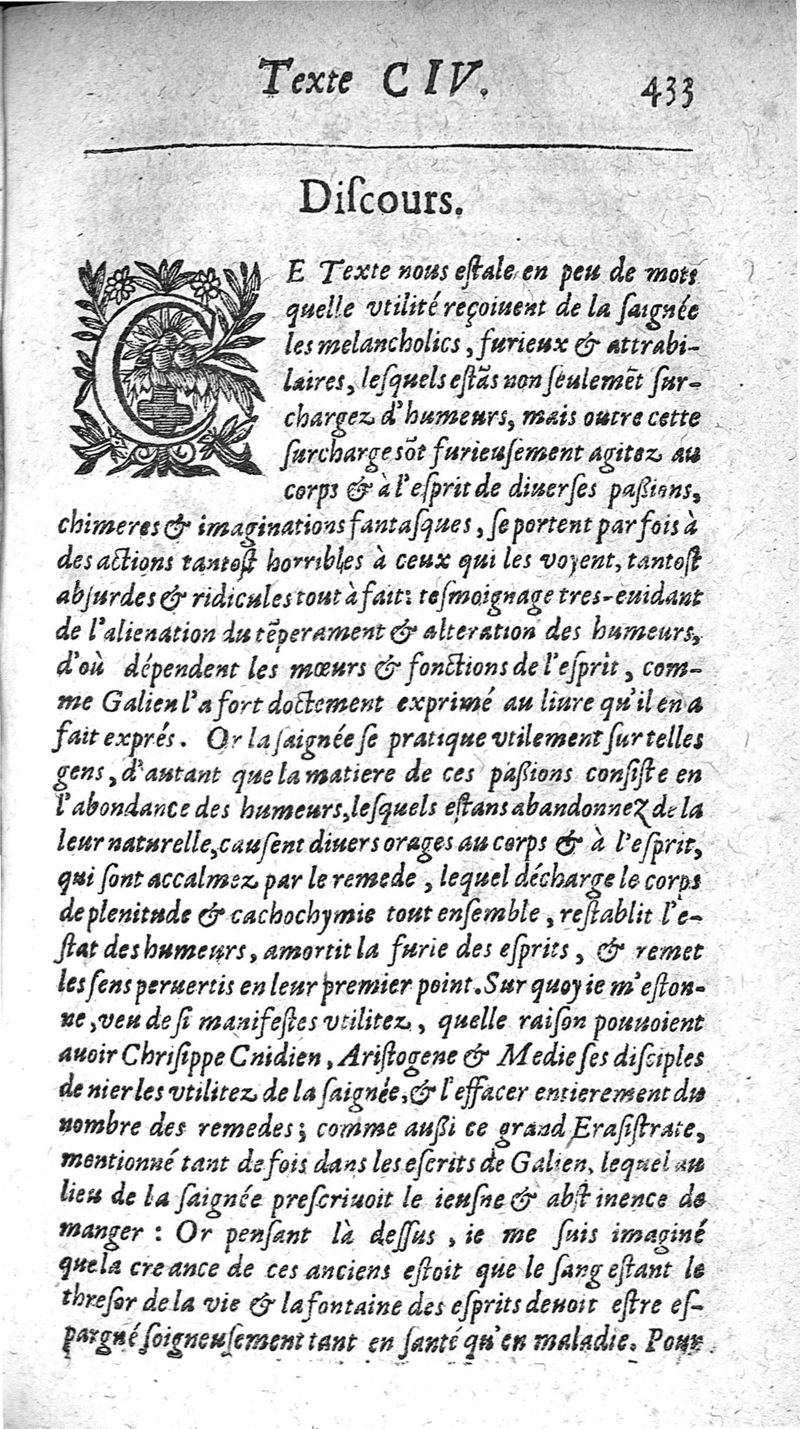 Texte CIV. 433
Diſcours.
CE Texte nous eſtale en peu de mots
quelle vtilité reçoiuent de la ſaignée
les melancholics, furieux & attrabi-
laires, leſquels eſtãs non ſeulemẽt ſur-
chargez d'humeurs, mais outre cette
ſurcharge sõt furieuſement agitez au
corps & à l'eſprit de diuerſes paßions,
chimeres & imaginations fantaſques, ſe portent par fois à
des actions tantoſt horribles à ceux qui les voyent, tantoſt
abſurdes & ridicules tout à fait: teſmoignage tres-euidant
de l'alienation du tẽperament & alteration des humeurs,
d'où dépendent les mœurs & fonctions de l'eſprit, com-
me Galien l'a fort doctement exprimé au liure qu'il en a
fait exprés. Or la ſaignée ſe pratique vtilement ſur telles
gens, d'autant que la matiere de ces paßions conſiſte en
l'abondance des humeurs, leſquels eſtans abandonnez de la
leur naturelle, cauſent diuers orages au corps & à l'eſprit,
qui ſont accalmez par le remede, lequel décharge le corps
de plenitude & cachochymie tout enſemble, reſtablit l'e-
ſtat des humeurs, amortit la furie des eſprits, & remet
les ſens peruertis en leur premier point. Sur quoy ie m'eſton-
ne, veu de ſi manifeſtes vtilitez, quelle raiſon pouuoient
auoir Chriſippe Cnidien, Ariſtogene & Medie ſes diſciples
de nier les vtilitez de la ſaignée, & l'effacer entierement du
nombre des remedes; comme außi ce grand Eraſiſtrate,
mentionné tant de fois dans les eſcrits de Galien, lequel au
lieu de la ſaignée preſcriuoit le ieuſne & abſtinence de
manger : Or penſant là deſſus, ie me ſuis imaginé
que la creance de ces anciens eſtoit que le ſang eſtant le
threſor de la vie & la fontaine des eſprits deuoit eſtre eſ-
pargné ſoigneuſement tant en ſanté qu'en maladie. Pour